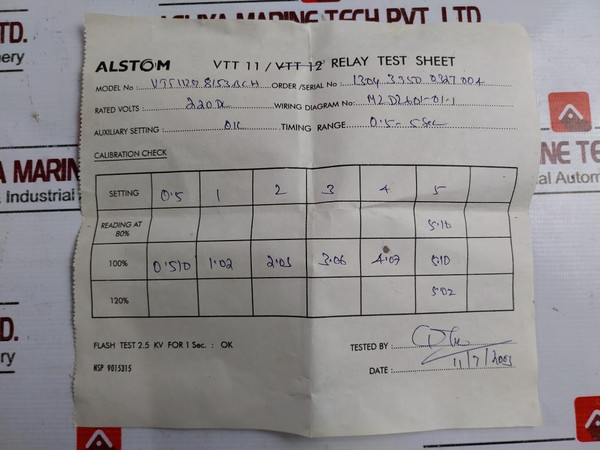 ASHYA MARINE TECH PVT. LTD.
ALSTOM VTT 11 / VTT 12 RELAY TEST SHEET
MODEL No : ORDER /SERIAL No : 1304 3350 0327 004
RATED VOLTS : 220 DC WIRING DIAGRAM No: 01-1
AUXILIARY SETTING : OK TIMING RANGE : 0.5 - 5 Sec
CALIBRATION CHECK
SETTING 0.5 1 2 3 4 5
READING AT 80% 5.10
100% 0.510 1.02 2.05 3.06 4.07 5.10
120% 5.02
FLASH TEST 2.5 KV FOR 1 Sec. : OK
TESTED BY :
DATE : 11/7/2003
NSP 9015315
YA MARIN
& Industrial
INE TE
al Automa
D.
nery